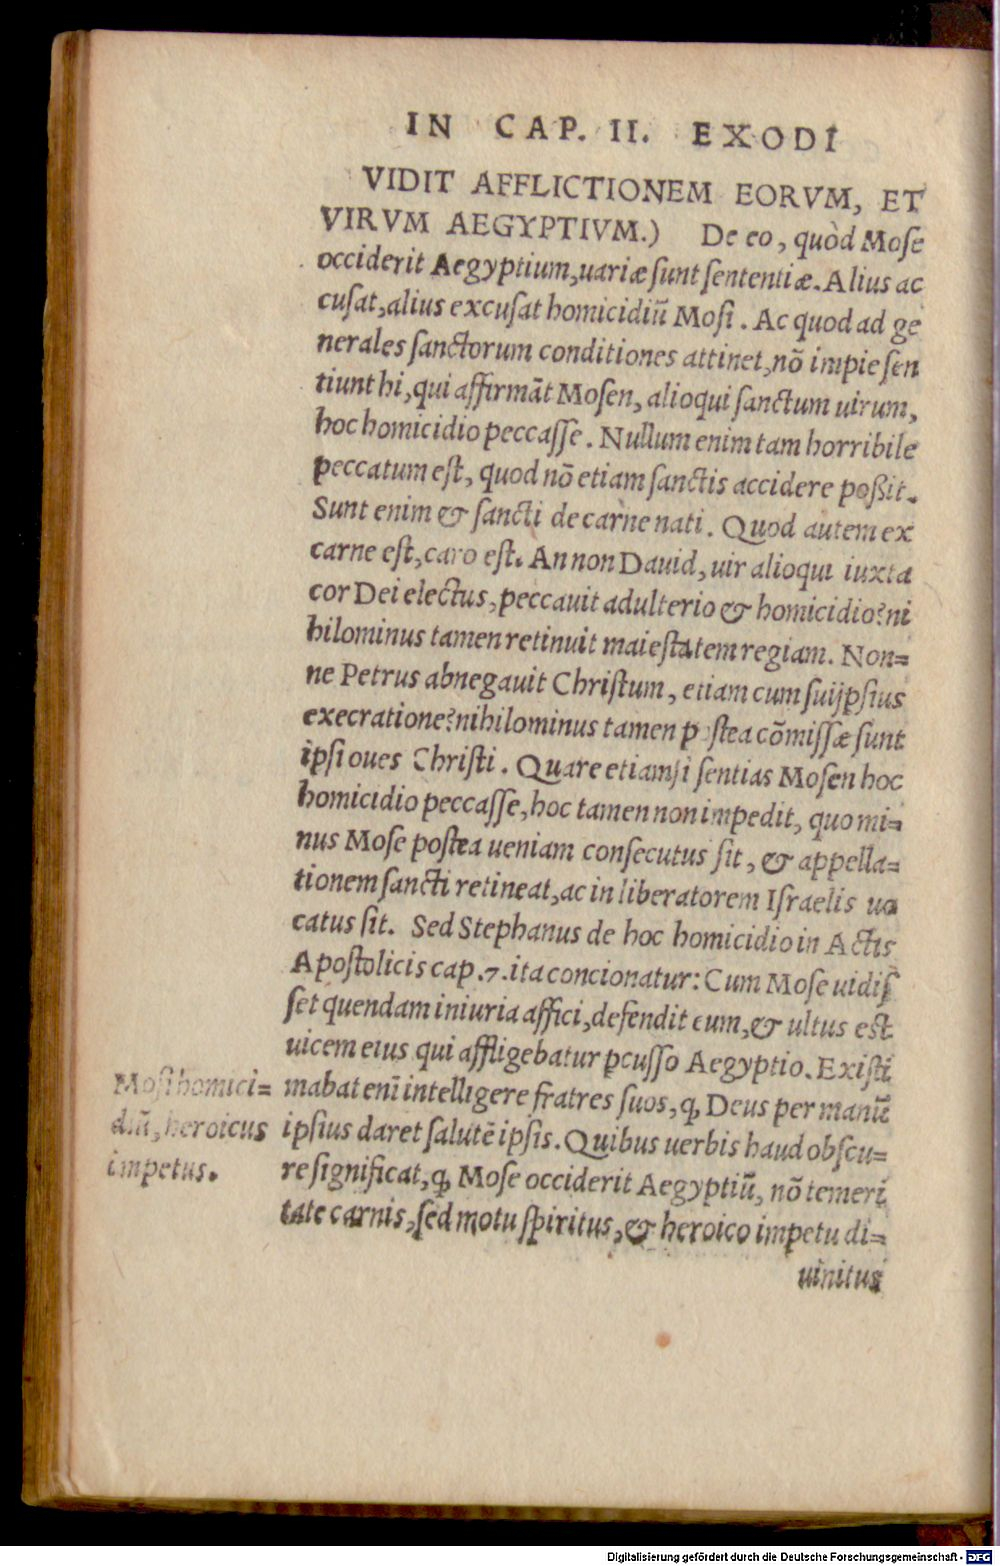 IN CAP. II. EXODI
VIDIT AFFLICTIONEM EORVM, ET
VIRVM AEGYPTIVM.) De eo, quòd Mose
occiderit Aegyptium, uariæ sunt sententiæ. Alius ac
cusat, alius excusat homicidiũ Mosi. Ac quod ad ge
nerales sanctorum conditiones attinet, nõ impie sen
tiunt hi, qui affirmãt Mosen, alioqui sanctum uirum,
hoc homicidio peccasse. Nullum enim tam horribile
peccatum est, quod nõ etiam sanctis accidere poßit.
Sunt enim & sancti de carne nati. Quod autem ex
carne est, caro est. An non Dauid, uir alioqui iuxta
cor Dei electus, peccauit adulterio & homicidio? ni
hilominus tamen retinuit maiestatem regiam. Non=
ne Petrus abnegauit Christum, etiam cum suijpsius
execratione? nihilominus tamen postea cõmissæ sunt
ipsi oues Christi. Quare etiamsi sentias Mosen hoc
homicidio peccasse, hoc tamen non impedit, quo mi=
nus Mose postea ueniam consecutus sit, & appella=
tionem sancti retineat, ac in liberatorem Israelis uo
catus sit. Sed Stephanus de hoc homicidio in Actis
Apostolicis cap. 7. ita concionatur: Cum Mose uidis
set quendam iniuria affici, defendit eum, & ultus est
uicem eius qui affligebatur ꝑcusso Aegyptio. Existi
mabat enĩ intelligere fratres suos, ꝙ Deus per manũ
ipsius daret salutẽ ipsis. Quibus uerbis haud obscu=
re significat, ꝙ Mose occiderit Aegyptiũ, nõ temeri
tate carnis, sed motu spiritus, & heroico impetu di=
uinitus
Mosi homici=
diũ, heroicus
impetus.
Digitalisierung gefördert durch die Deutsche Forschungsgemeinschaft - DFG